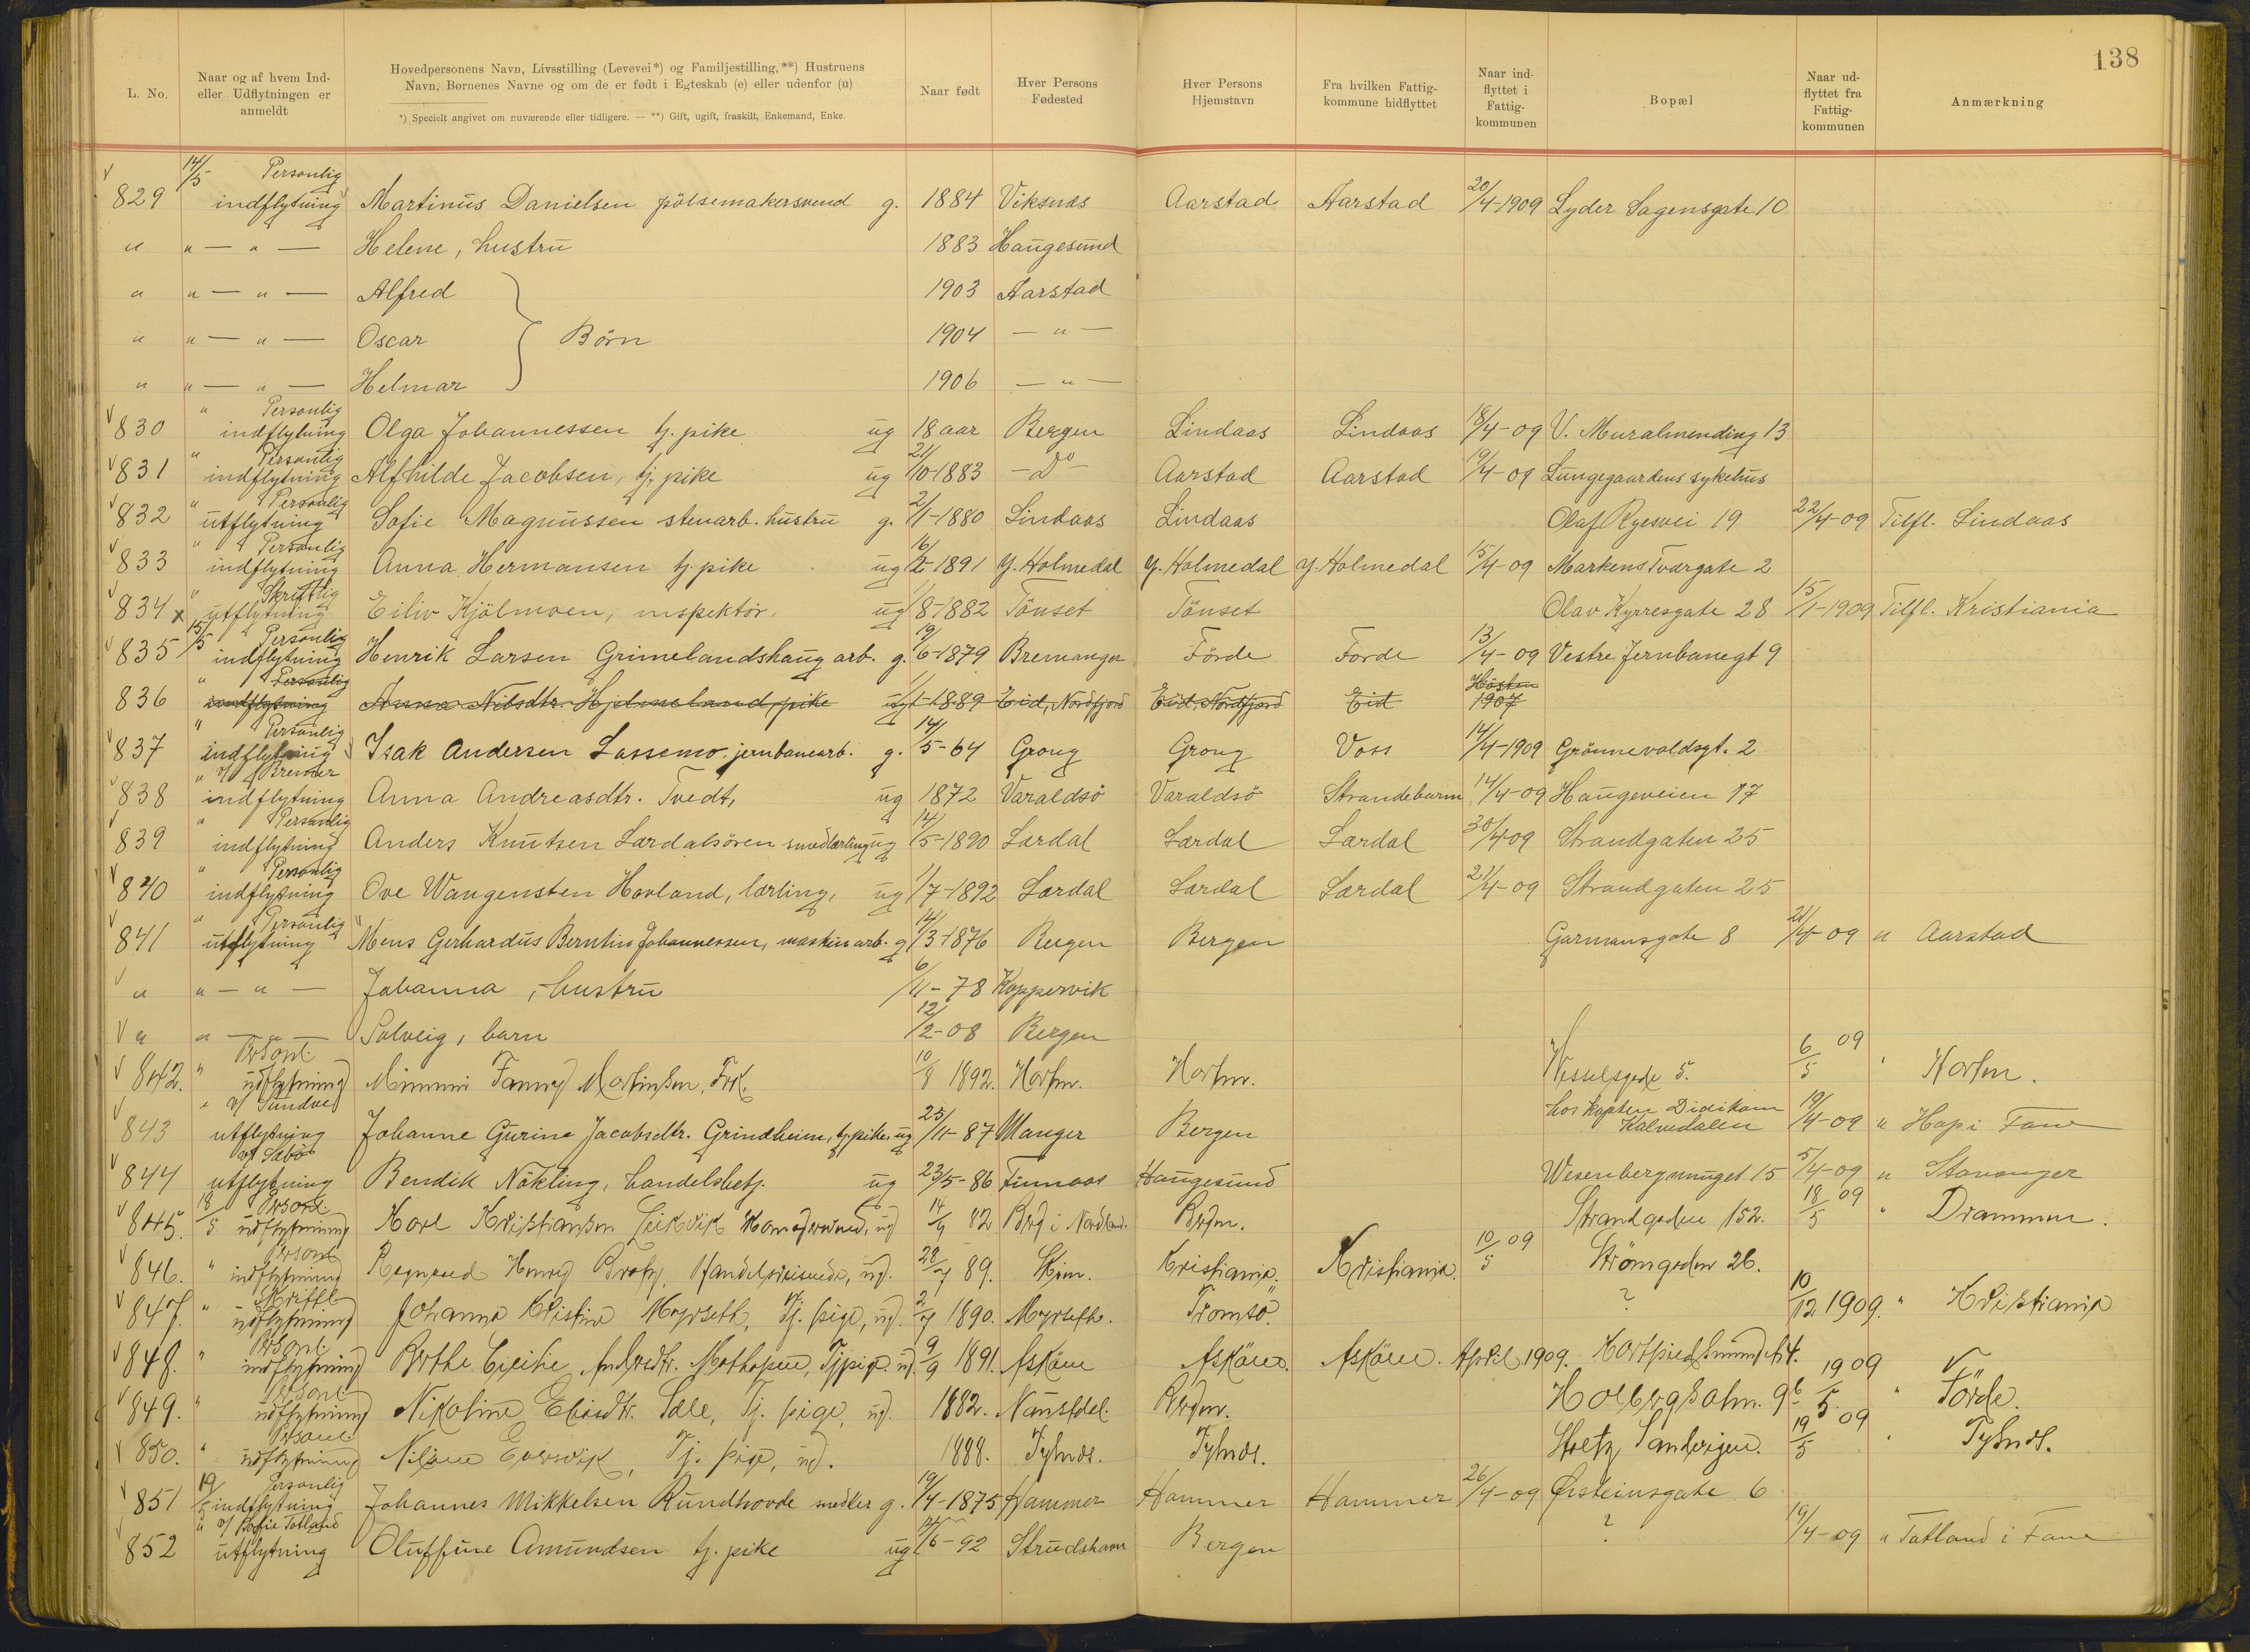 138
L. No.
Naar og af hvem Ind-
eller Udflytningen er
anmeldt
Hovedpersonens Navn, Livsstilling (Levevei*) og Familjestilling,**) Hustruens
Navn, Børnenes Navne og om de er født i Egteskab (e) eller udenfor (u)
*) Specielt angivet om nuværende eller tidligere. — **) Gift, ugift, fraskilt, Enkemand, Enke.
Naar født
Hver Persons
Fødested
Hver Persons
Hjemstavn
Fra hvilken Fattig-
kommune hidflyttet
Naar ind-
flyttet i
Fattig-
kommunen
Bopæl
Naar ud-
flyttet fra
Fattig-
kommunen
Anmærkning
14/5 Personlig
829 indflytning Martinus Danielsen pölsemakersvend g. 1884 Viksnæs Aarstad Aarstad 20/4-1909 Lyder Sagensgate 10
" " — " — Helene, hustru 1883 Haugesund
" " — " — Alfred 1903 Aarstad
" " — " — Oscar } Börn 1904 — " —
" " — " — Helmar 1906 — " —
" Personlig
830 indflytning Olga Johannessen tj. pike ug 18 aar Bergen Lindaas Lindaas 18/4-09 V. Muralmending 13
" Personlig
831 indflytning Alfhilde Jacobsen, tj. pike ug 21/10-1883 — Do — Aarstad Aarstad 19/4-09 Lungegaardens sykehus
" Personlig
832 utflytning Sofie Magnussen stenarb. hustru g. 2/1-1880 Lindaas Lindaas Olaf Ryesvei 19 22/4-09 Tilfl. Lindaas
" Personlig
833 indflytning Anna Hermansen tj. pike ug 16/2-1891 Y. Holmedal Y. Holmedal Y. Holmedal 15/4-09 Markens Tværgate 2
" Skriftlig
834 x utflytning Eiliv Kjölmoen, inspektör, ug 1/8-1882 Tönset Tönset Olav Kyrresgate 28 15/1-1909 Tilfl. Kristiania
15/5 Personlig
835 indflytning Henrik Larsen Grimelandshaug arb. g. 19/6-1879 Bremanger Förde Förde 13/4-09 Vestre Jernbanegt 9
" Personlig
836 indflytning Anna Nilsdtr. Hjelmeland, pike ug 1/1-1889 Eid, Nordfjord Eid, Nordfjord Eid Hösten 1907
" Personlig
837 indflytning Isak Andersen Lassemo, jernbanearb. g. 14/5-64 Grong Grong Voss 14/4-1909 Grönnevoldsgt. 2
" v/ Bremer
838 indflytning Anna Andreasdtr. Tvedt, ug 1872 Varaldsö Varaldsö Strandebarm 14/4-09 Haugeveien 17
" Personlig
839 indflytning Anders Knutsen Lærdalsören smedlærling ug 14/5-1890 Lærdal Lærdal Lærdal 30/4-09 Strandgaten 25
" Personlig
840 indflytning Ove Wangensten Hovland, lærling, ug 1/7-1892 Lærdal Lærdal Lærdal 21/4-09 Strandgaten 25
" Personlig
841 utflytning Mons Gerhardus Berntin Johannessen, maskinarb. g 14/3-1876 Bergen Bergen Garmansgate 8 21/4-09 " Aarstad
" " — " — Johanna, hustru 6/11-78 Koppervik
" " — " — Solveig, barn 12/2-08 Bergen
" Personl.
842. udflytning Mimmi Fanny Martinsen, Frk. 10/8 1892. Horten. Horten. Wesselsgade 5. 6/5 09 " Horten.
" v/ Sundve
843 utflytning Johanne Gurine Jacobsdtr. Grindheim, tj. pike, ug 25/11-87 Manger Bergen hos kapten Didikson Kalvedalen 19/4-09 " Hop i Fane
v/ Sæbö
844 utflytning Bendik Nökling, handelsbetj. ug 23/5-86 Finnaas Haugesund Wesenbergsmuget 15 5/4-09 " Stavanger
18/5 Personl.
845. udflytning Karl Kristiansen ug 14/9 82 i Nordland. Bergen. Strandgaden 152. 18/5 09 " Drammen.
Personl
846. " indflytning Ragnvald Henry Handelsreisende, ug. 28/7 89. Skien. Kristiania. Kristiania. 10/5 09 Strömgaden 26.
Skriftl
847. " udflytning Johanna Kristine Myrseth, Tj. pige, ug. 2/7 1890. Myrseth. Tromsö. ? 10/12 1909. " Kristiania
Personl.
848. " indflytning Berthe Cecilie Andersdtr. Mathopen, Tj. pige. ug. 9/9 1891. Asköen Asköen. Asköen. April 1909.
Personl
849. " udflytning Nikoline Eliasdtr. Tj. pige, ug. 1882. Naustdal. Bergen. Holbergsalm. 9b 19/5 09 " Förde.
Personl.
850. " udflytning Tj. pige, ug. 1888. Tysnes. Tysnes. 19/5 09 " Tysnes.
19/5 Personlig
851 indflytning Johannes Mikkelsen Rundhovde snedker g. 19/4-1875 Hammer Hammer Hammer 26/4-09 Øisteinsgate 6
" v/ Sofie Totland
852 utflytning Oluffine Amundsen tj. pike ug 14/6-92 Strudshavn Bergen ? 19/4-09 " Totland i Fane